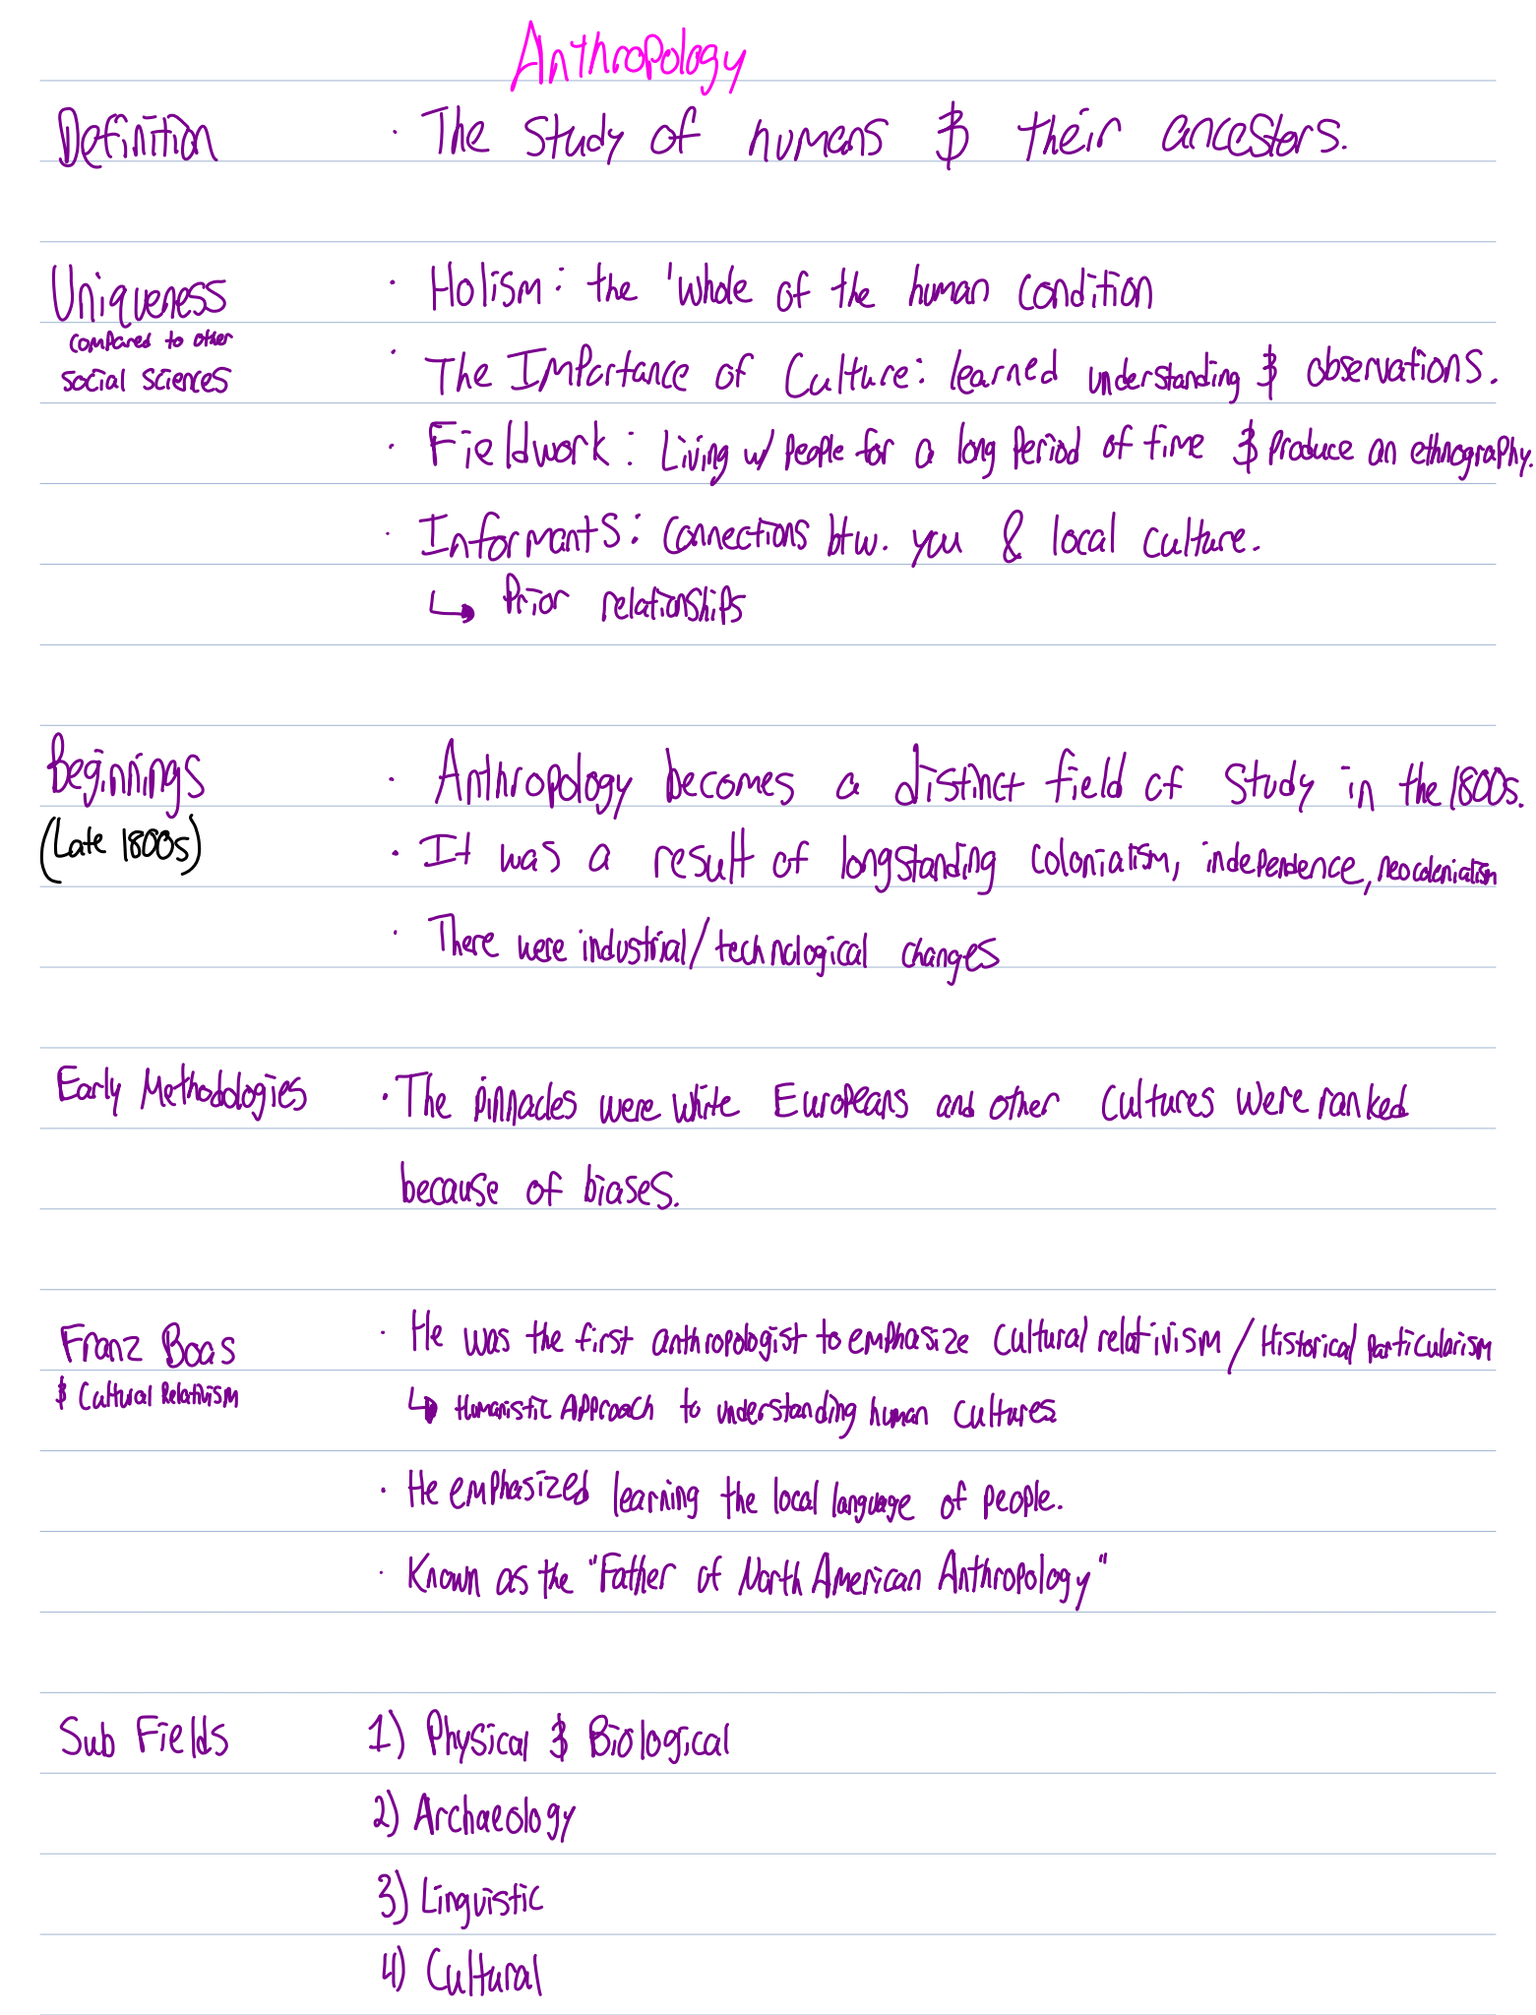 Anthropology
Definition · The study of humans & their ancestors.
Uniqueness · Holism: the 'whole of the human condition
compared to other
social sciences · The Importance of Culture: learned understanding & observations.
· Fieldwork: Living w/ people for a long period of time & produce an ethnography.
· Informants: Connections btw. you & local culture.
↳ Prior relationships
Beginnings · Anthropology becomes a distinct field of study in the 1800s.
(Late 1800s) · It was a result of longstanding colonialism, independence, neocolonialism
· There were industrial/technological changes
Early Methodologies · The pinnacles were white Europeans and other cultures were ranked
because of biases.
Franz Boas · He was the first anthropologist to emphasize cultural relativism / Historical particularism
& Cultural Relativism ↳ Humanistic Approach to understanding human cultures
· He emphasized learning the local language of people.
· Known as the "Father of North American Anthropology"
Sub Fields 1) Physical & Biological
2) Archaeology
3) Linguistic
4) Cultural